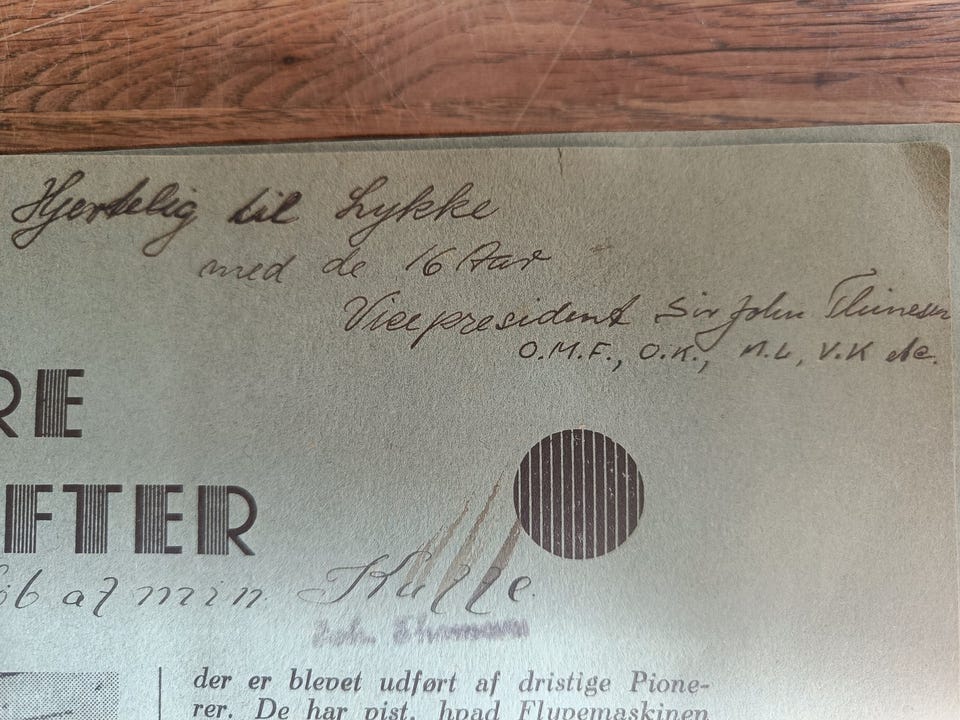 Hjertelig til Lykke
med de 16 Aar
Vicepresident Sir John
O.M.F., O.K., M.L, V.K etc.
RE
FTER
af min
der er blevet udført af dristige Pione-
rer. De har vist, hvad Flyvemaskinen